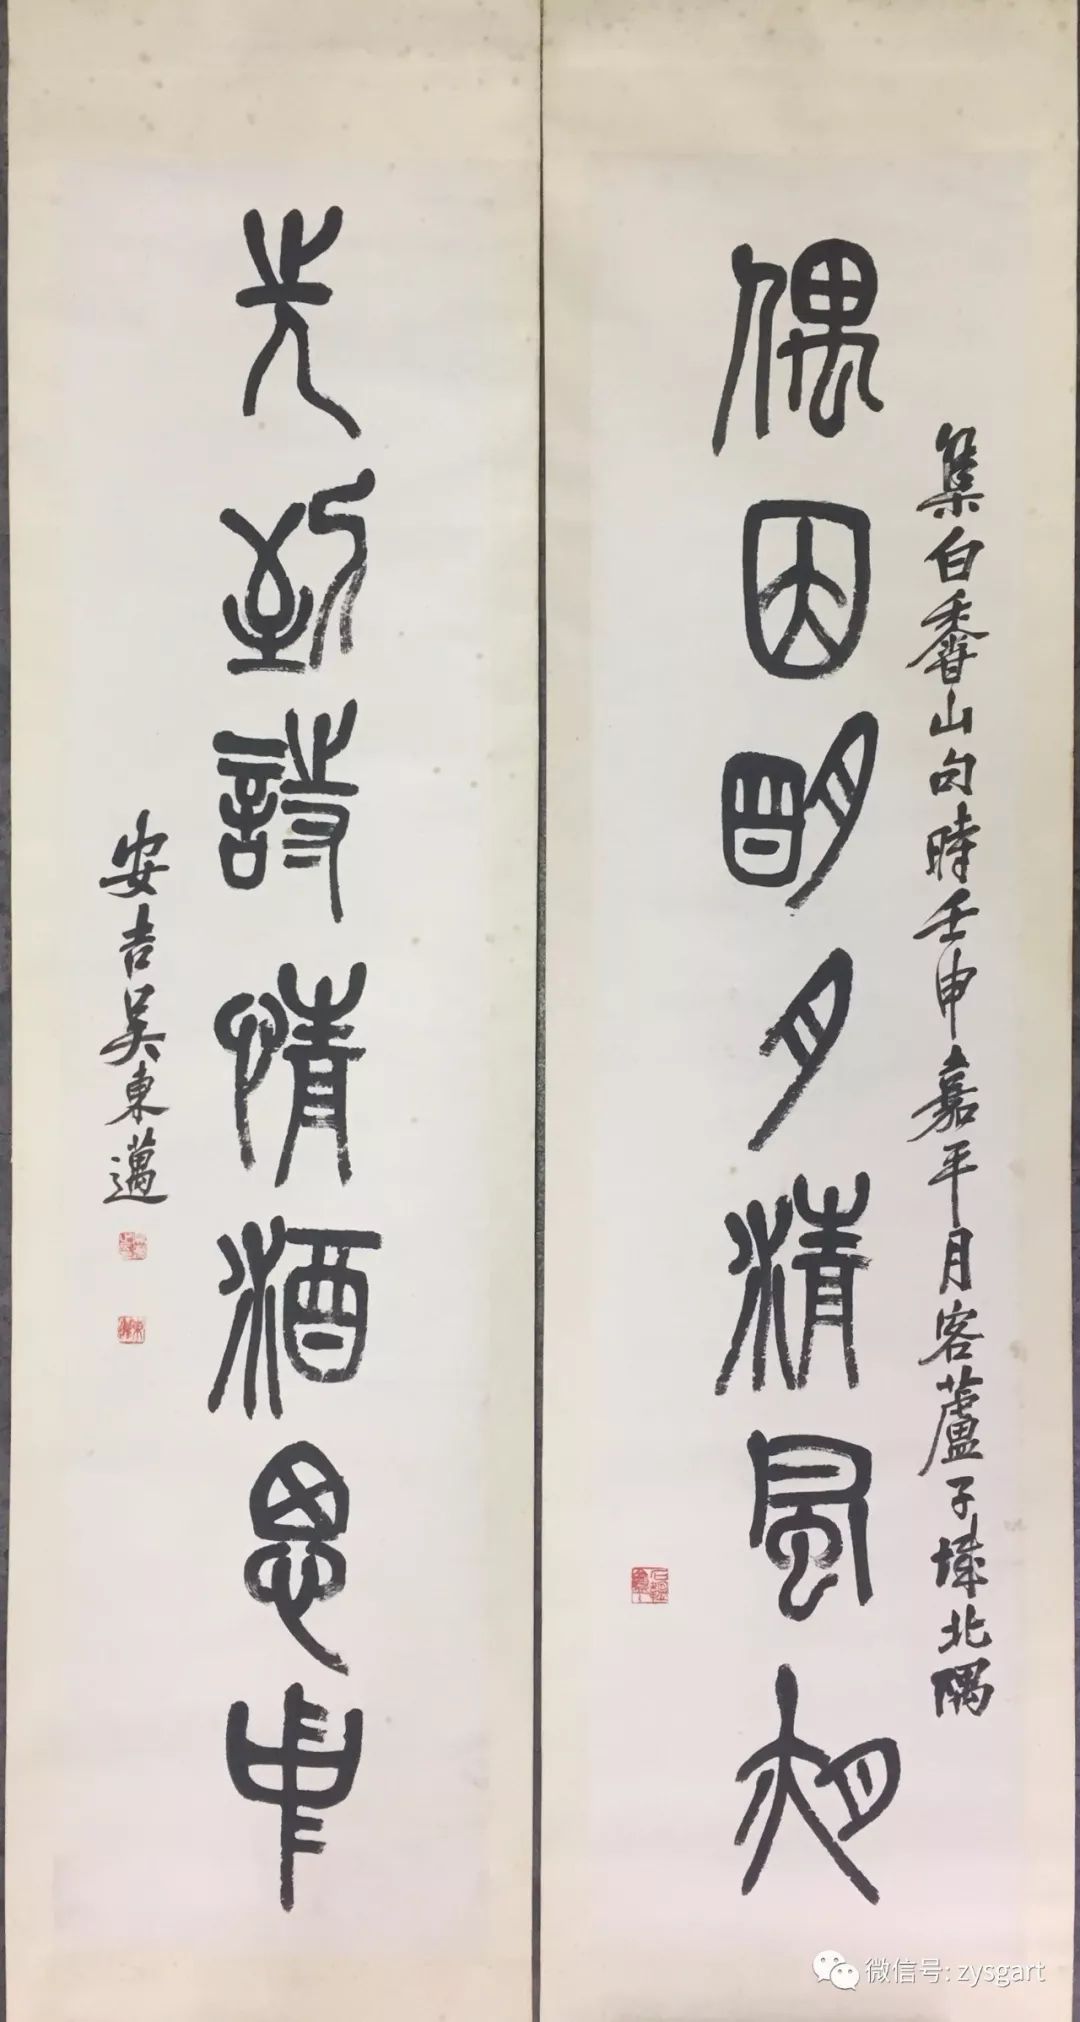 偶因明月清風夜
集白香山句時壬申嘉平月客蘆子城北隅
先到詩情酒思中
安吉吳東邁
微信号: zysgart